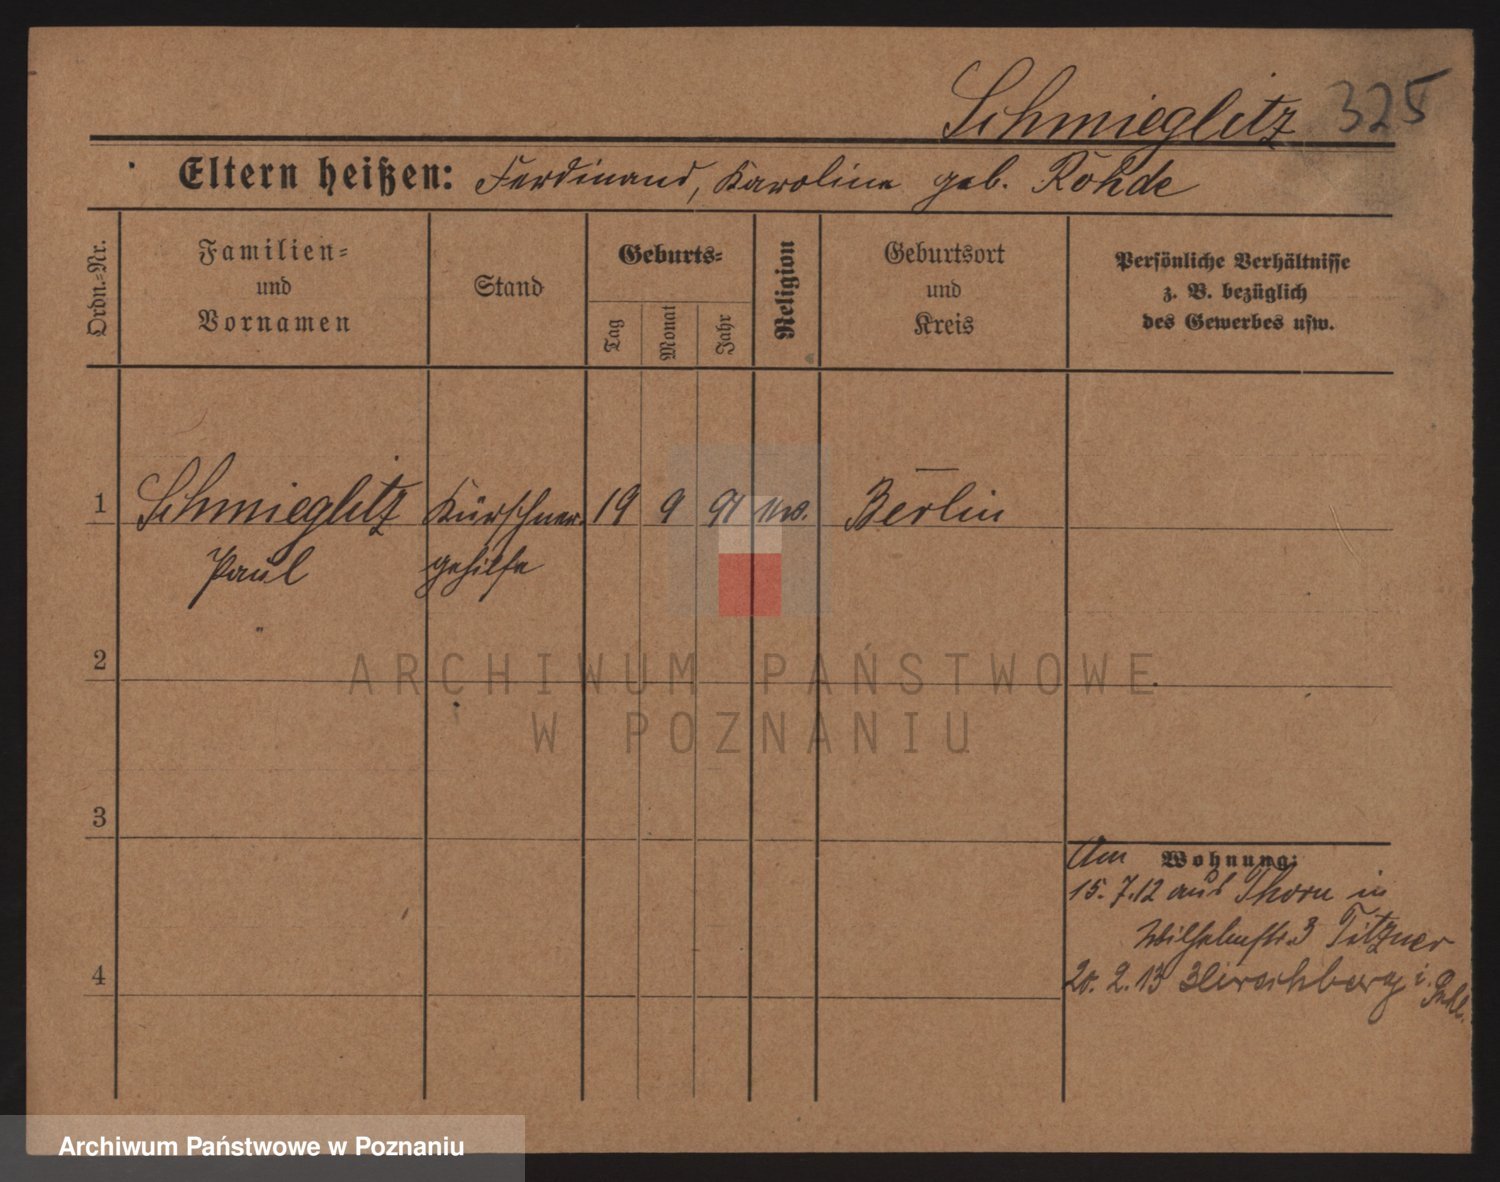 Schmieglitz 325
Eltern heißen: Ferdinand, Karoline geb. Rohde
Ordn.-Nr.
Familien-
und
Vornamen
Stand
Geburts-
Tag
Monat
Jahr
Religion
Geburtsort
und
Kreis
Persönliche Verhältnisse
z. B. bezüglich
des Gewerbes usw.
1 Schmieglitz Kürschner- 19 9 91 Berlin
Paul gehilfe
2
3
4
Wohnung:
Am
15.7.12 aus Thorn in
Wilhelmstr. 3 Titzner
20.2.13 Hirschberg i. Schl.
ARCHIWUM PAŃSTWOWE
W POZNANIU
Archiwum Państwowe w Poznaniu